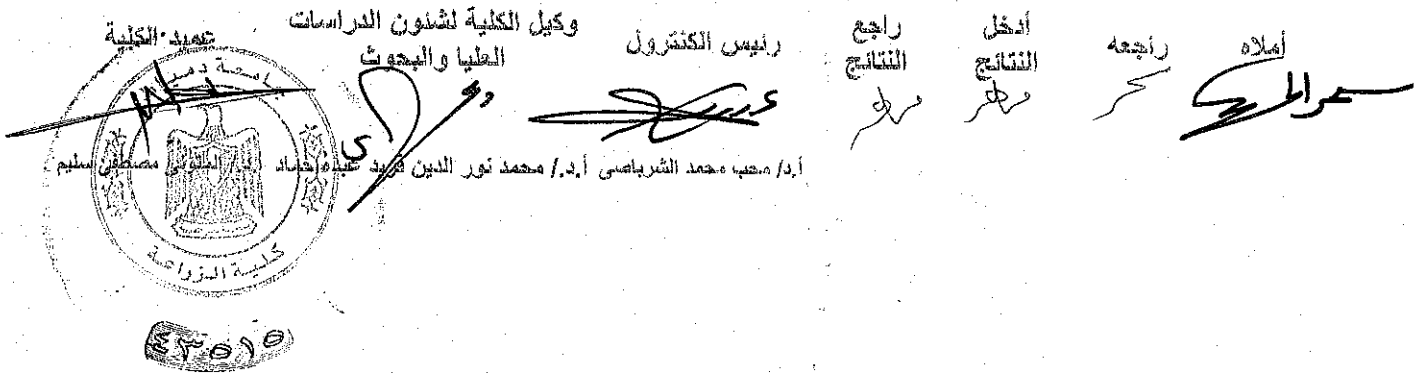 أملاه راجعه أدخل النتائج راجع النتائج رئيس الكنترول وكيل الكلية لشئون الدراسات العليا والبحوث عميد الكلية
سحر
أ.د/ محب محمد الشرباصى أ.د./ محمد نور الدين فريد عبده حماد مصطفى سليم
جامعة دمياط
كلية الزراعة
٤٣٥١٥